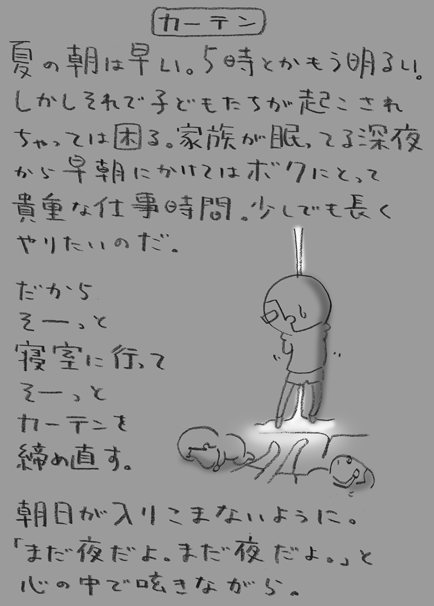 カーテン
夏の朝は早い。5時とかもう明るい。
しかしそれで子どもたちが起こされ
ちゃっては困る。家族が眠ってる深夜
から早朝にかけてはボクにとって
貴重な仕事時間。少しでも長く
やりたいのだ。
だから
そーっと
寝室に行って
そーっと
カーテンを
締め直す。
朝日が入りこまないように。
「まだ夜だよ。まだ夜だよ。」と
心の中で呟きながら。